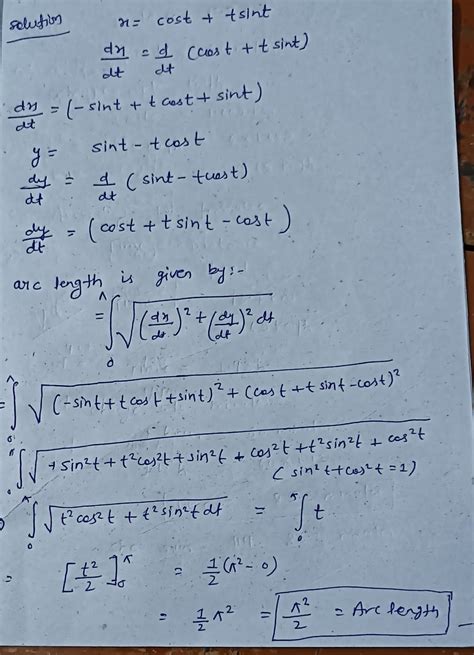 solution x = cost + tsint
dx/dt = d/dt (cost + t sint)
dx/dt = (-sint + t cost + sint)
y = sint - t cost
dy/dt = d/dt (sint - tcost)
dy/dt = (cost + t sint - cost)
arc length is given by:-
= ∫₀^π √((dx/dt)² + (dy/dt)² dt
= ∫₀^π √((-sint + t cost + sint)² + (cost + t sint - cost)²
∫₀^π √(+ sin²t + t²cos²t + sin²t + cos²t + t²sin²t + cos²t
(sin²t + cos²t = 1)
∫₀^π √(t²cos²t + t²sin²t dt = ∫₀^π t
= [t²/2]₀^π = 1/2 (π² - 0)
= 1/2 π² = π²/2 = Arc length